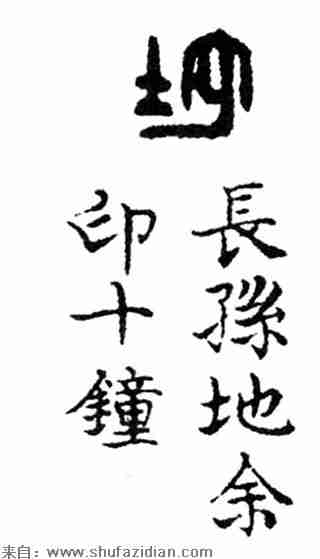 地
長孫地余
印十鐘
来自：www.shufazidian.com